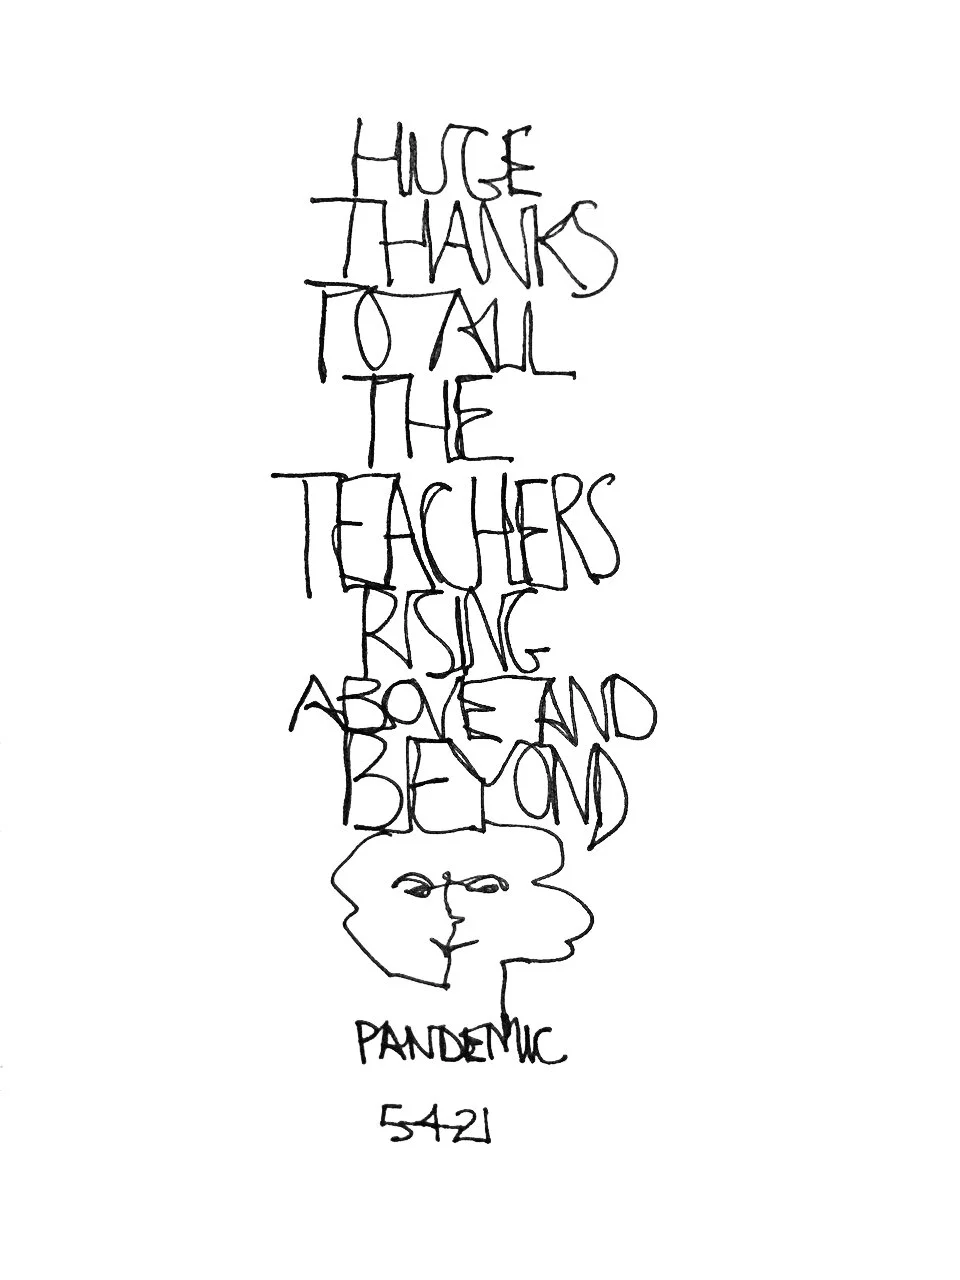 HUGE
THANKS
TO ALL
THE
TEACHERS
RISING
ABOVE AND
BEYOND
PANDEMIC
5-4-21